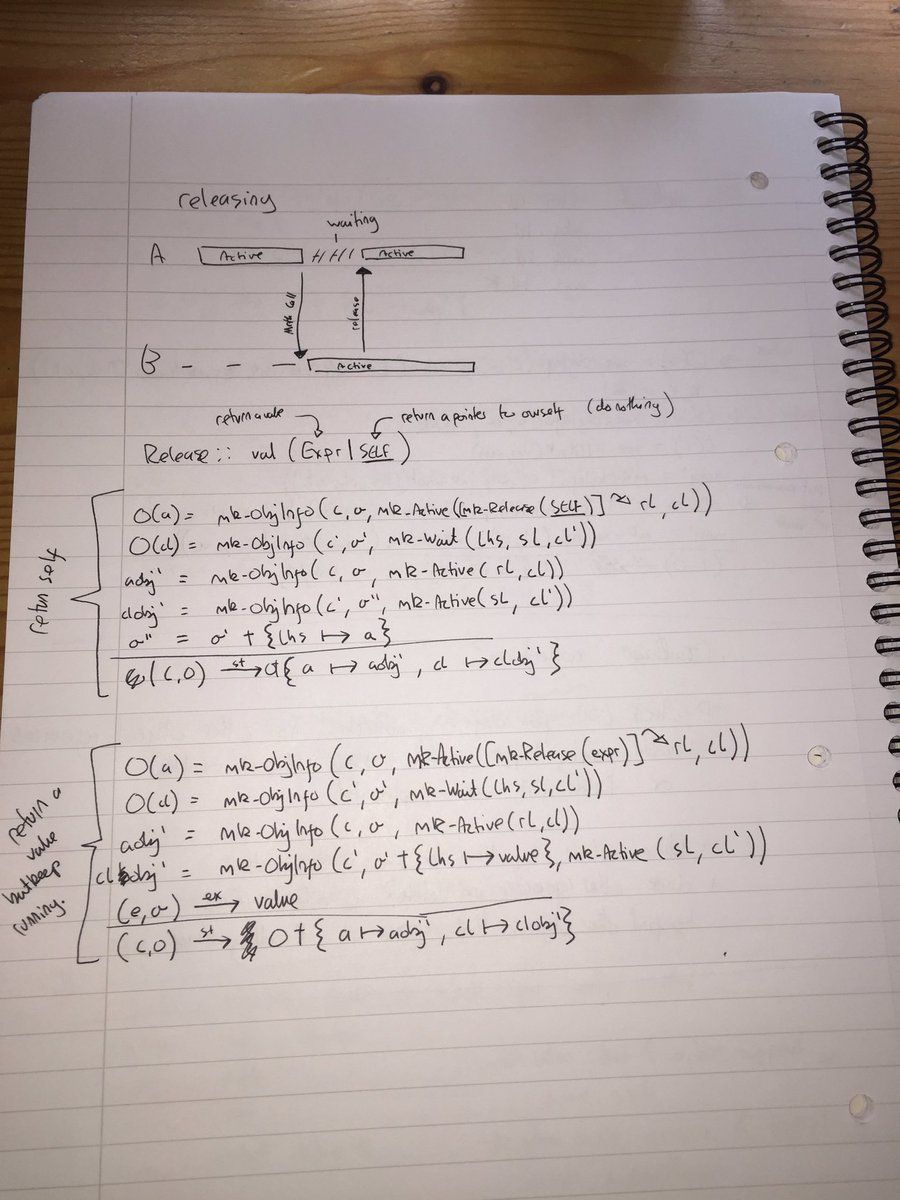 releasing
waiting
A Active Active
Meth Call release
B Active
return a value return a pointer to ourself (do nothing)
Release :: val (Expr | SELF)
return self
O(a) = mk-ObjInfo(c, σ, mk-Active([mk-Release(SELF)] ↷ rl, cl))
O(cl) = mk-ObjInfo(c', σ', mk-Wait(lhs, sl, cl'))
aobj' = mk-ObjInfo(c, σ, mk-Active(rl, cl))
clobj' = mk-ObjInfo(c', σ'', mk-Active(sl, cl'))
σ'' = σ' † {lhs ↦ a}
(C, O) st→ O † {a ↦ aobj', cl ↦ clobj'}
return a value but keep running.
O(a) = mk-ObjInfo(c, σ, mk-Active([mk-Release(expr)] ↷ rl, cl))
O(cl) = mk-ObjInfo(c', σ', mk-Wait(lhs, sl, cl'))
aobj' = mk-ObjInfo(c, σ, mk-Active(rl, cl))
clobj' = mk-ObjInfo(c', σ' † {lhs ↦ value}, mk-Active(sl, cl'))
(e, σ) ex→ value
(C, O) st→ O † {a ↦ aobj', cl ↦ clobj'}